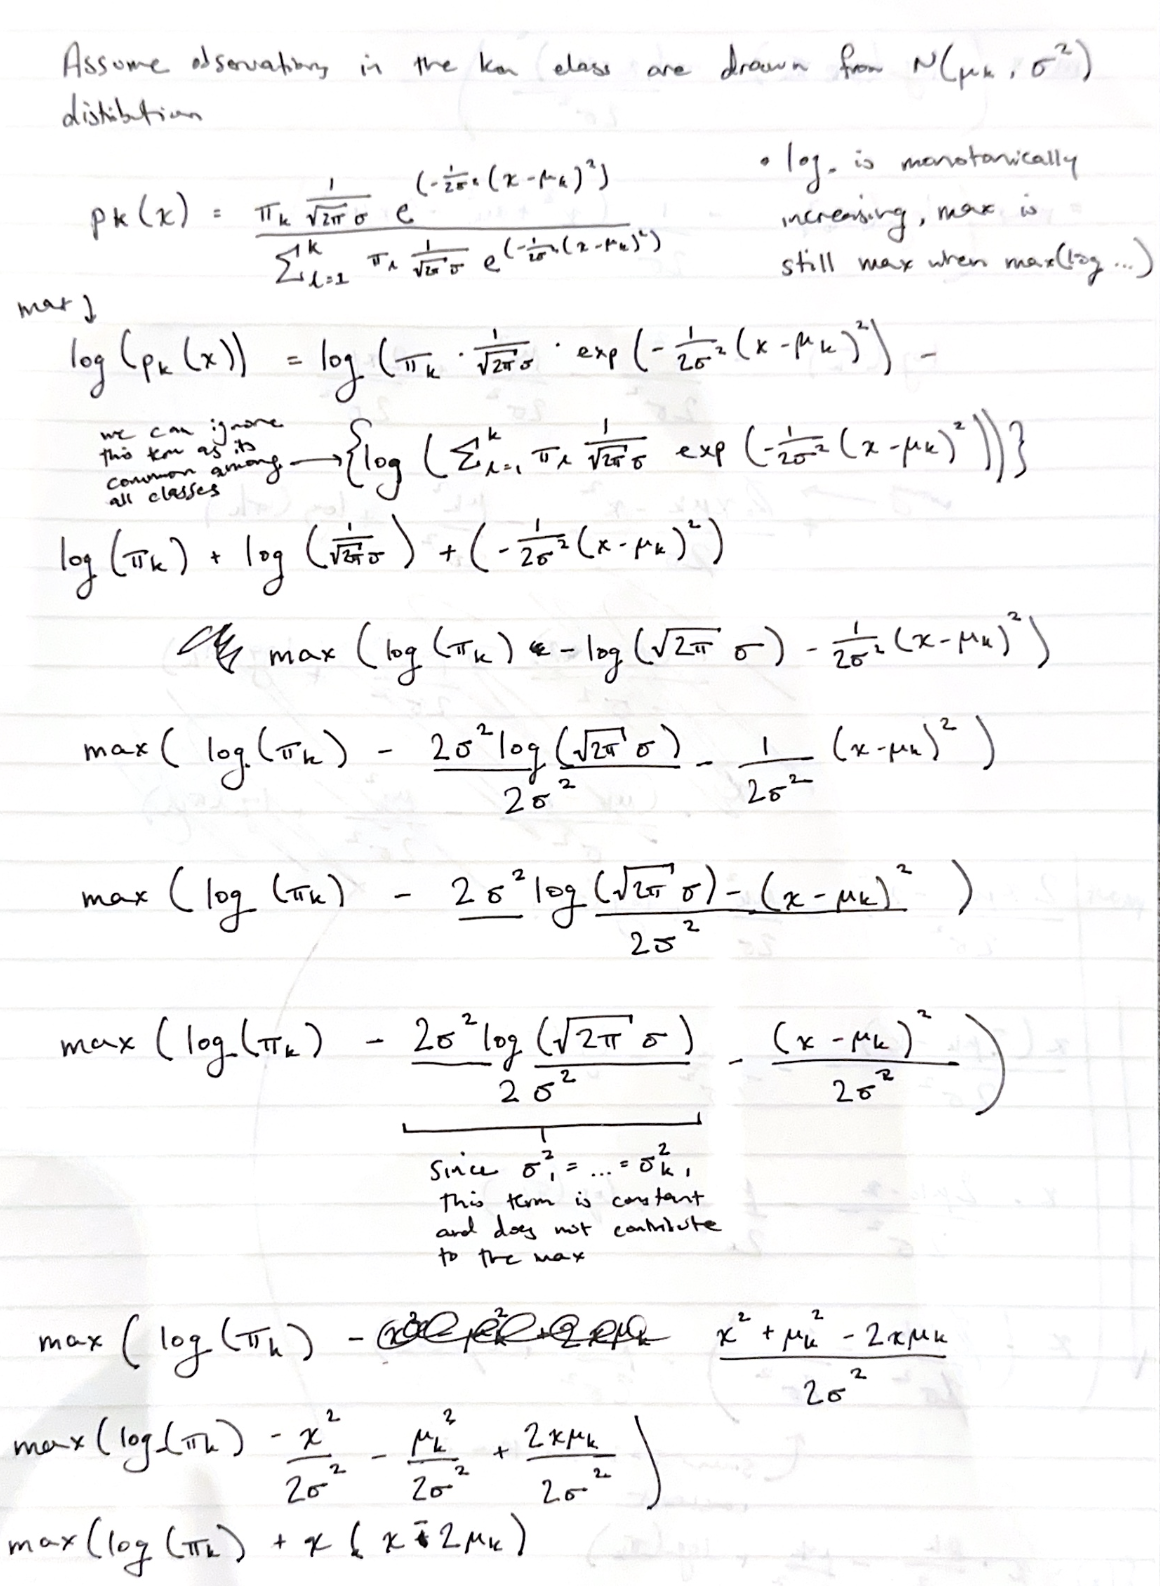 Assume observations in the kth class are drawn from N(μₖ, σ²)
distibution
pk(x) = πₖ 1/(√2π σ) e^(-1/2σ² (x-μₖ)²) / Σ^k_{l=1} πₗ 1/(√2π σ) e^(-1/2σ² (x-μₖ)²)
• log. is monotonically
increasing, max is
still max when max(log ...)
max ↓
log (pₖ(x)) = log (πₖ · 1/(√2π σ) · exp (-1/2σ² (x-μₖ)²)) -
we can ignore
this term as its
common among
all classes
→ {log (Σ^k_{l=1} πₗ 1/(√2π σ) exp (-1/2σ² (x-μₖ)²))}
log (πₖ) + log (1/(√2π σ)) + (-1/2σ² (x-μₖ)²)
max (log (πₖ) - log (√2π σ) - 1/2σ² (x-μₖ)²)
max ( log (πₖ) - 2σ² log (√2π σ)/2σ² - 1/2σ² (x-μₖ)² )
max ( log (πₖ) - 2σ² log (√2π σ) - (x-μₖ)²/2σ² )
max ( log (πₖ) - 2σ² log (√2π σ)/2σ² - (x-μₖ)²/2σ² )
Since σ₁² = ... = σₖ²,
this term is constant
and does not contribute
to the max
max ( log (πₖ) - x² + μₖ² - 2xμₖ/2σ²
max ( log (πₖ) - x²/2σ² - μₖ²/2σ² + 2xμₖ/2σ² )
max (log (πₖ) + x ( x - 2μₖ)